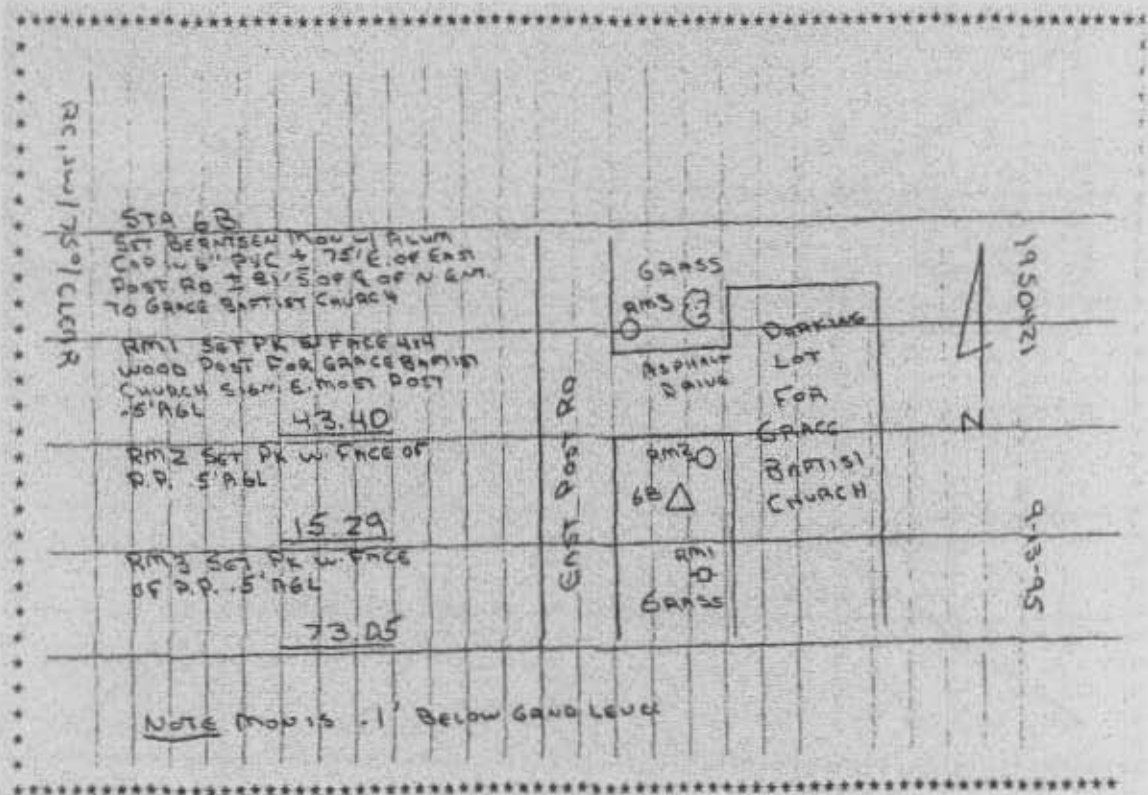 RC, JW / 75° / CLEAR
STA 6B
SET BERNTSEN MON W/ ALUM
CAP IN 6" PVC ± 75' E. OF EAST
POST RD ± 81' S OF ℄ OF N ENT.
TO GRACE BAPTIST CHURCH
RM1 SET PK FACE 4x4
WOOD POST FOR GRACE BAPTIST
CHURCH SIGN E. MOST POST
.5' AGL
43.40
RM2 SET PK W. FACE OF
P.P. .5' AGL
15.29
RM3 SET PK W. FACE
OF P.P. .5' AGL
73.05
NOTE MON IS .1' BELOW GRND LEVEL
EAST POST RD
GRASS
RM3
ASPHALT
DRIVE
RM2
6B
RM1
GRASS
PARKING
LOT
FOR
GRACE
BAPTIST
CHURCH
N
19950421
9-13-95